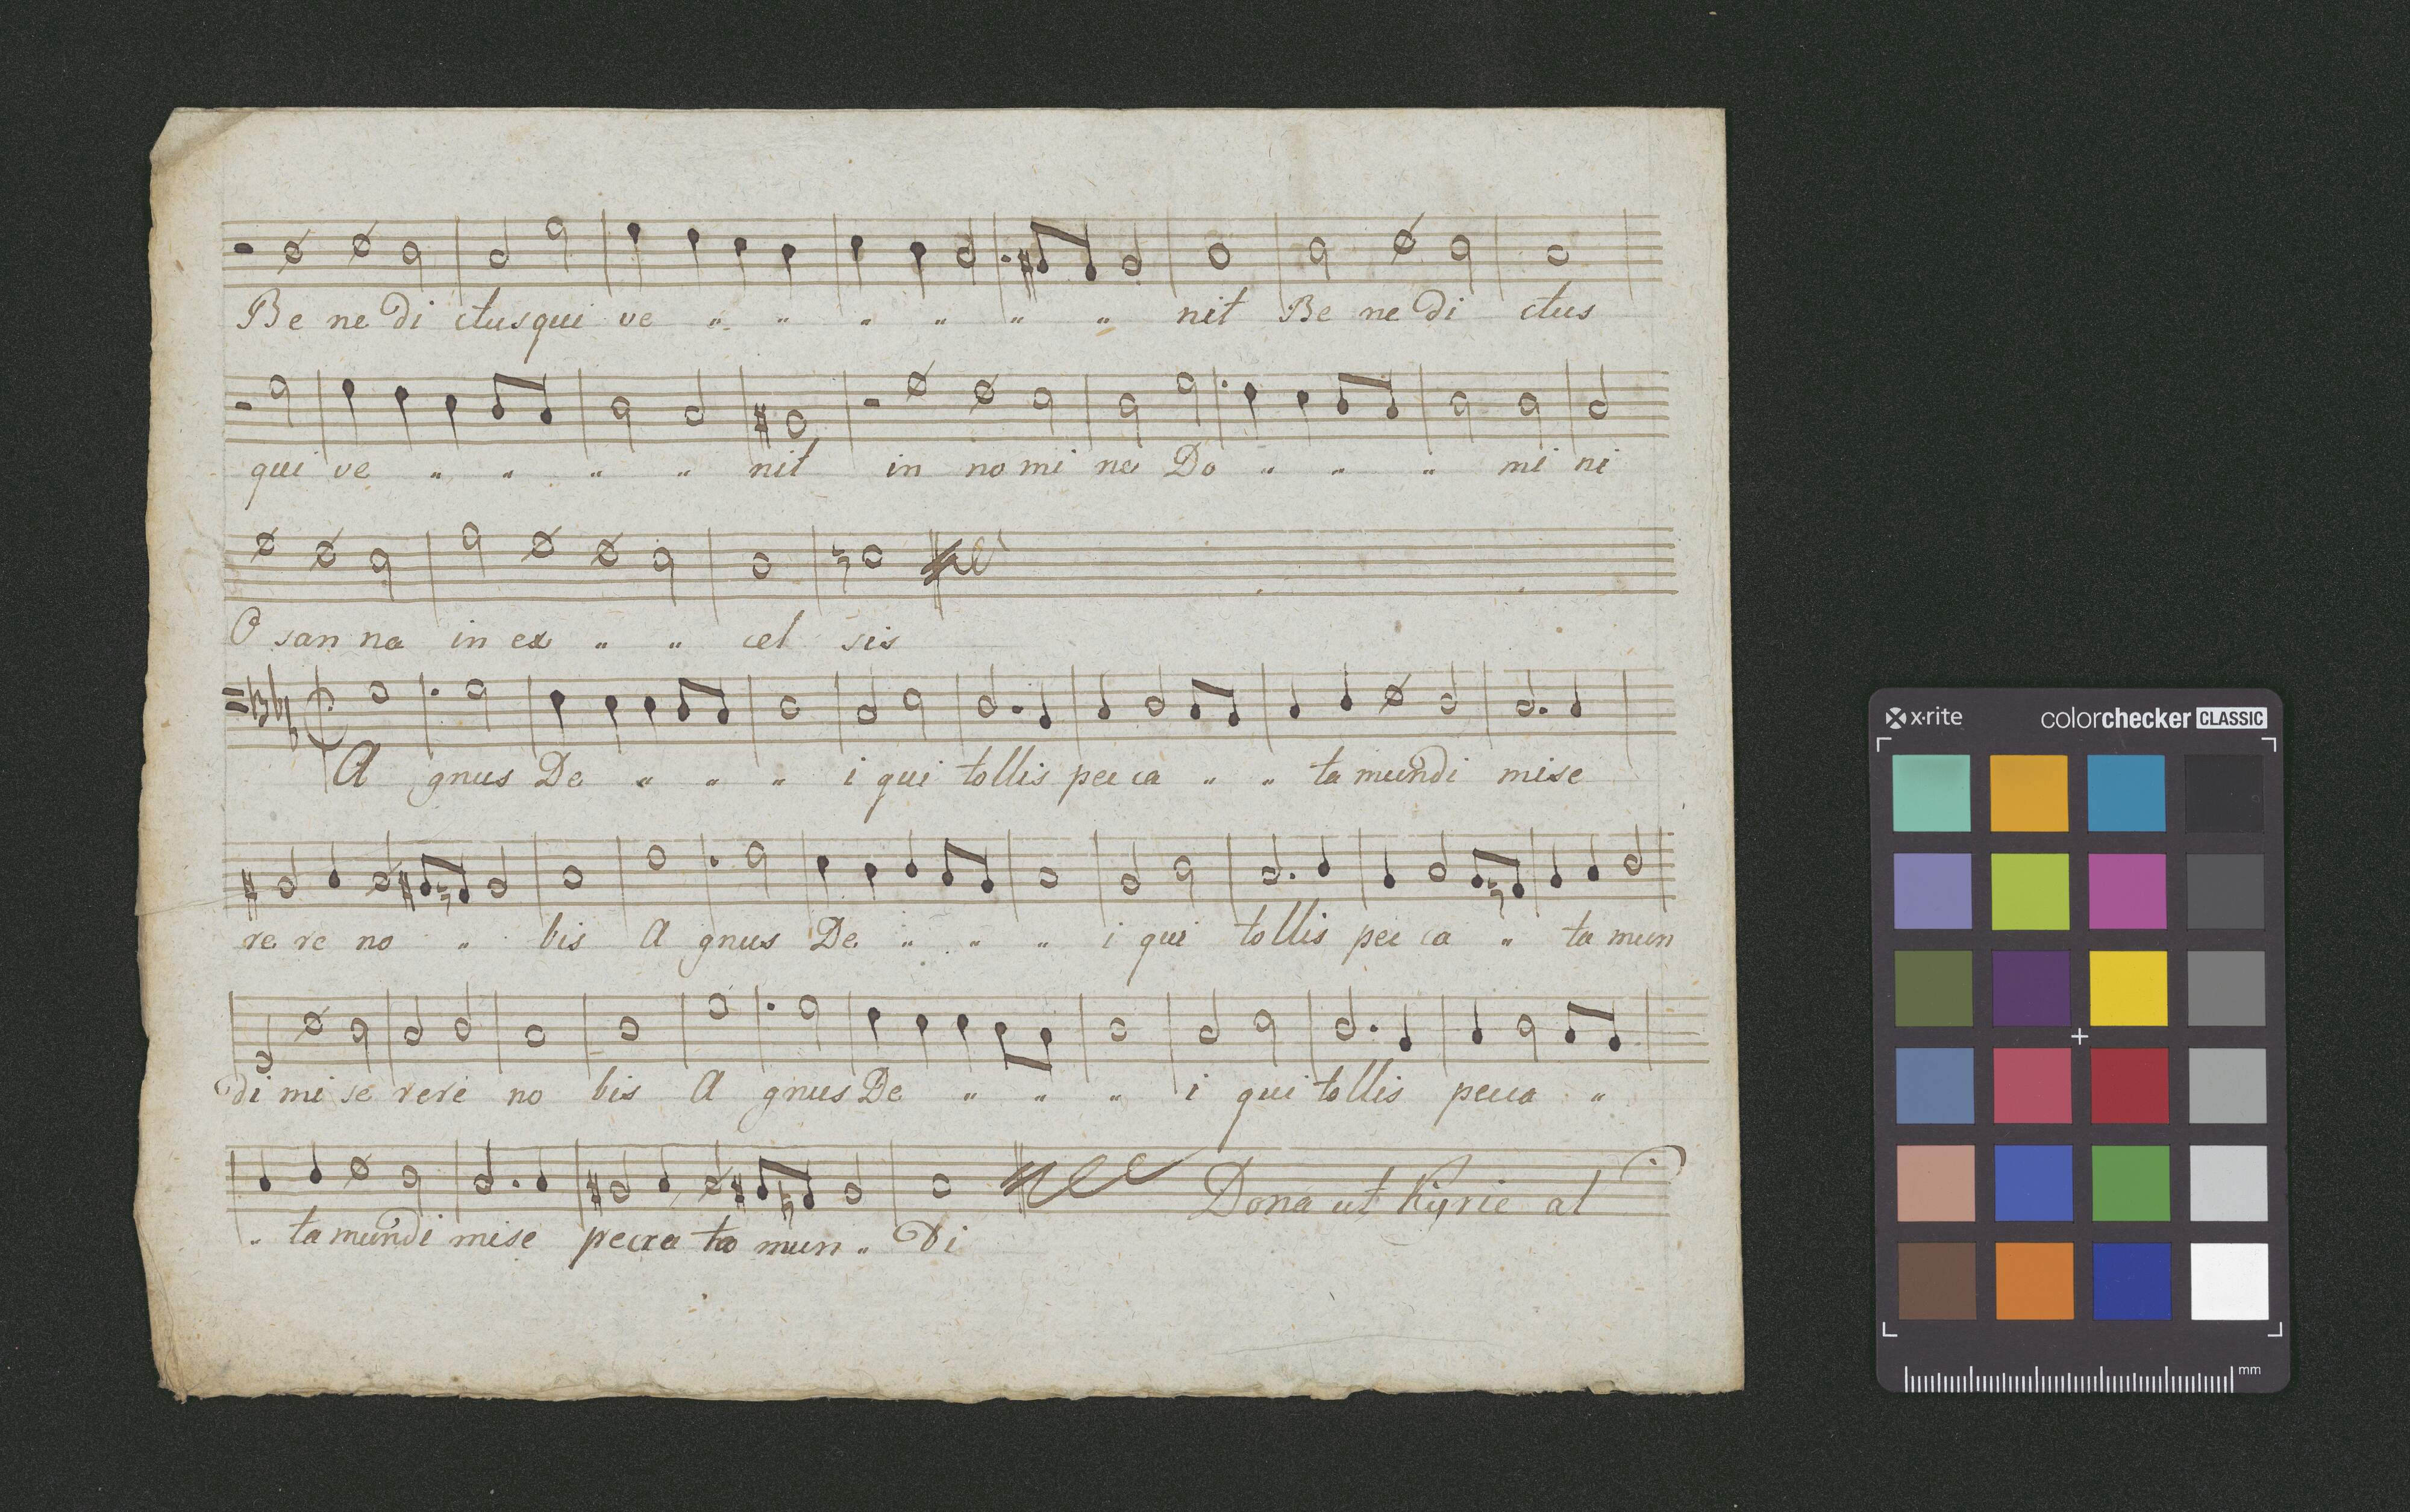 Be ne di ctus qui ve " " " " " " nit Be ne di ctus
qui ve " " " " nit in no mi ne Do " " " mi ni
O san na in ex " " cel sis
A gnus De " " " i qui tollis pec ca " " ta mundi mise
re re no " bis A gnus De " " " i qui tollis pec ca " ta mun
di mi se rere no bis A gnus De " " " i qui tollis pecca "
Dona ut Kyrie al
" ta mundi mise pecca ta mun " Di
x·rite colorchecker CLASSIC
mm